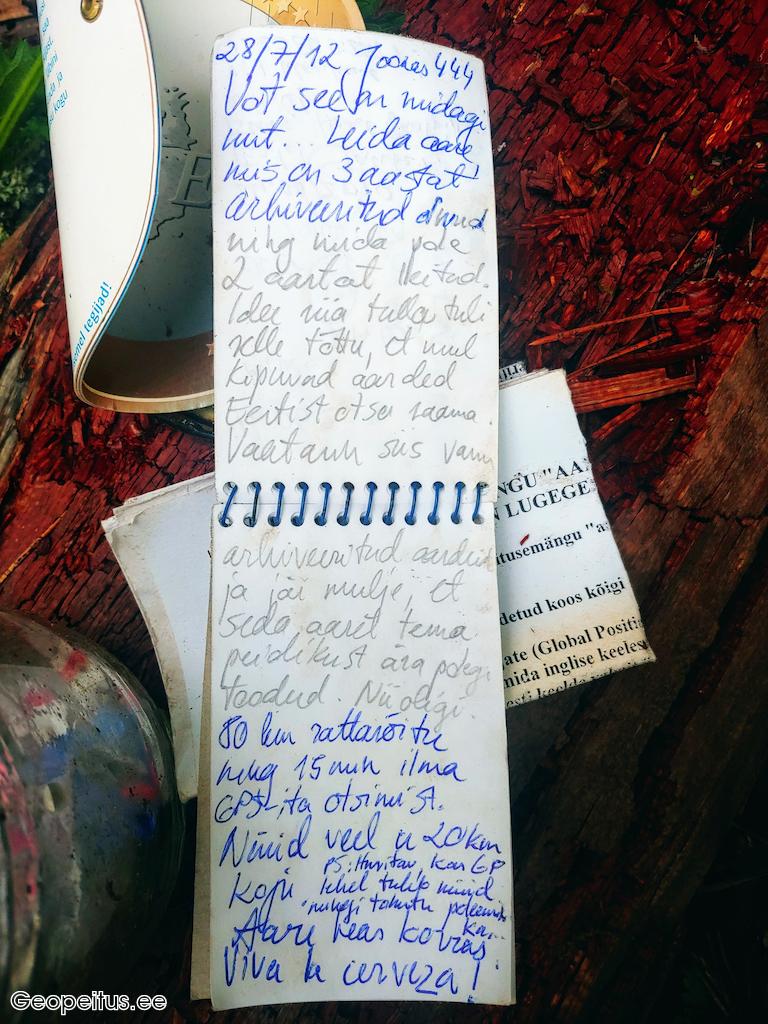 28/7/12 Joores444
Vot see on midagi
uut... Leida aare
mis on 3 aastat
arhiveeritud olnud
ning mida pole
2 aastat leitud.
Idee siia tulla tuli
selle tõttu, et mul
kipuvad aarded
Eestist otsa saama.
Vaatasin siis vanu
arhiveeritud aardeid
ja jäi mulje, et
seda aaret tema
peidikust ära polegi
toodud. Nii oligi.
80 km rattasõitu
ning 15 min ilma
GPS-ita otsimist.
Nüüd veel u 20 km
koju
PS: Huvitav, kas GP
lehel tulip nüüd
mingi tohutu poleemika
ka...
Aare heas korras
Viva la cerveza!
emel tegijad!
ja
kogu
E
NGU "AA
N LUGEGE
tusemängu "a
detud koos kõigi
ate (Global Positi
mida inglise keeles
Geopeitus.ee